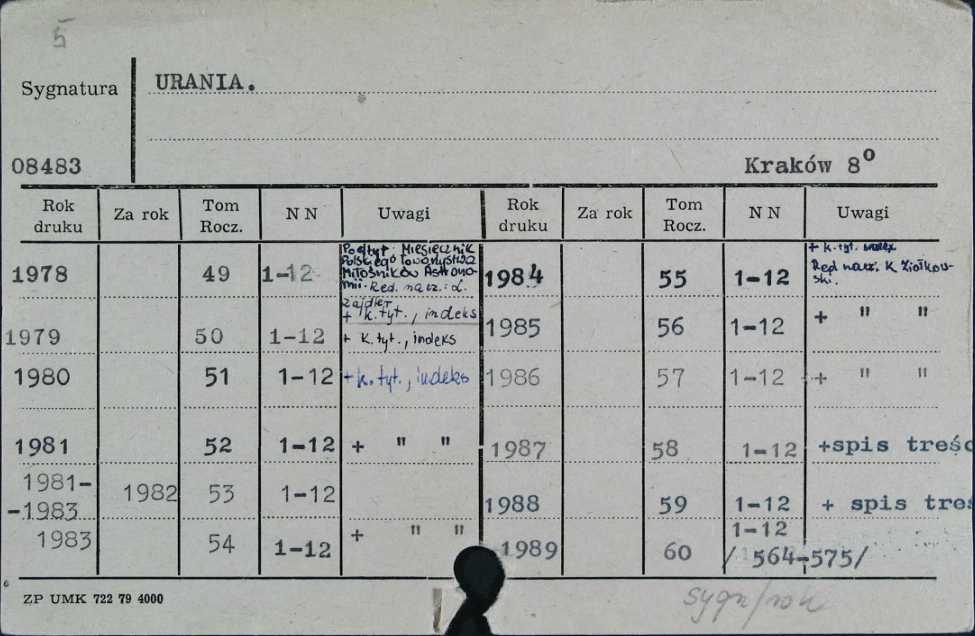 5
Sygnatura URANIA.
08483 Kraków 8º
Rok druku Za rok Tom Rocz. NN Uwagi Rok druku Za rok Tom Rocz. NN Uwagi
Podtyt. Miesięcznik
Polskiego Towarzystwa
Miłośników Astrono-
mii. Red. nacz.: L.
Zajdler
1978 49 1-12 + k.tyt., indeks
1979 50 1-12 + k.tyt., indeks
1980 51 1-12 +k.tyt., indeks
1981 52 1-12 + " "
1981-
-1983 1982 53 1-12
1983 54 1-12 + " "
+ k.tyt. index
Red nacz. K Ziołkow-
ski.
1984 55 1-12
1985 56 1-12 + " "
1986 57 1-12 + " "
1987 58 1-12 +spis treśc
1988 59 1-12 + spis treś
1-12
1989 60 / 564-575/
ZP UMK 722 79 4000
sygn/rok